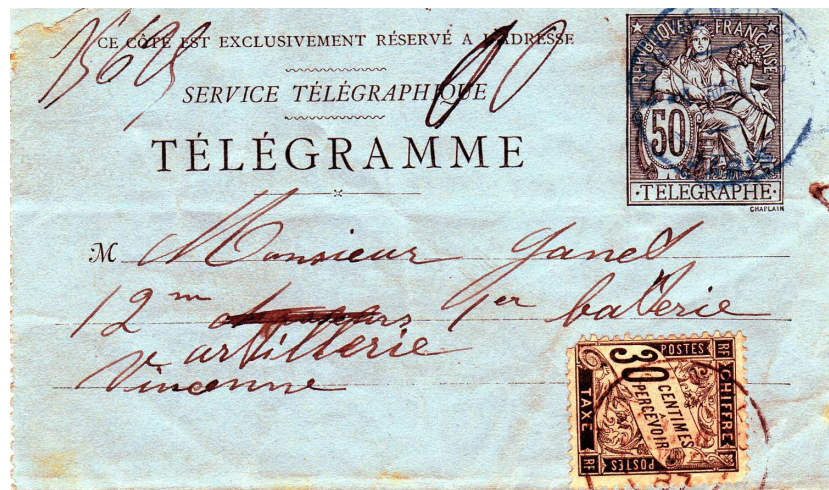 CE CÔTÉ EST EXCLUSIVEMENT RÉSERVÉ A L'ADRESSE
SERVICE TÉLÉGRAPHIQUE
TÉLÉGRAMME
RÉPUBLIQUE FRANÇAISE
50
·TELEGRAPHE·
CHAPLAIN
M Monsieur Janel
12m 1er batterie
artillerie
Vincenne
POSTES
RF
CHIFFRE
30 CENTIMES
À PERCEVOIR
TAXE
RF
POSTES
RF